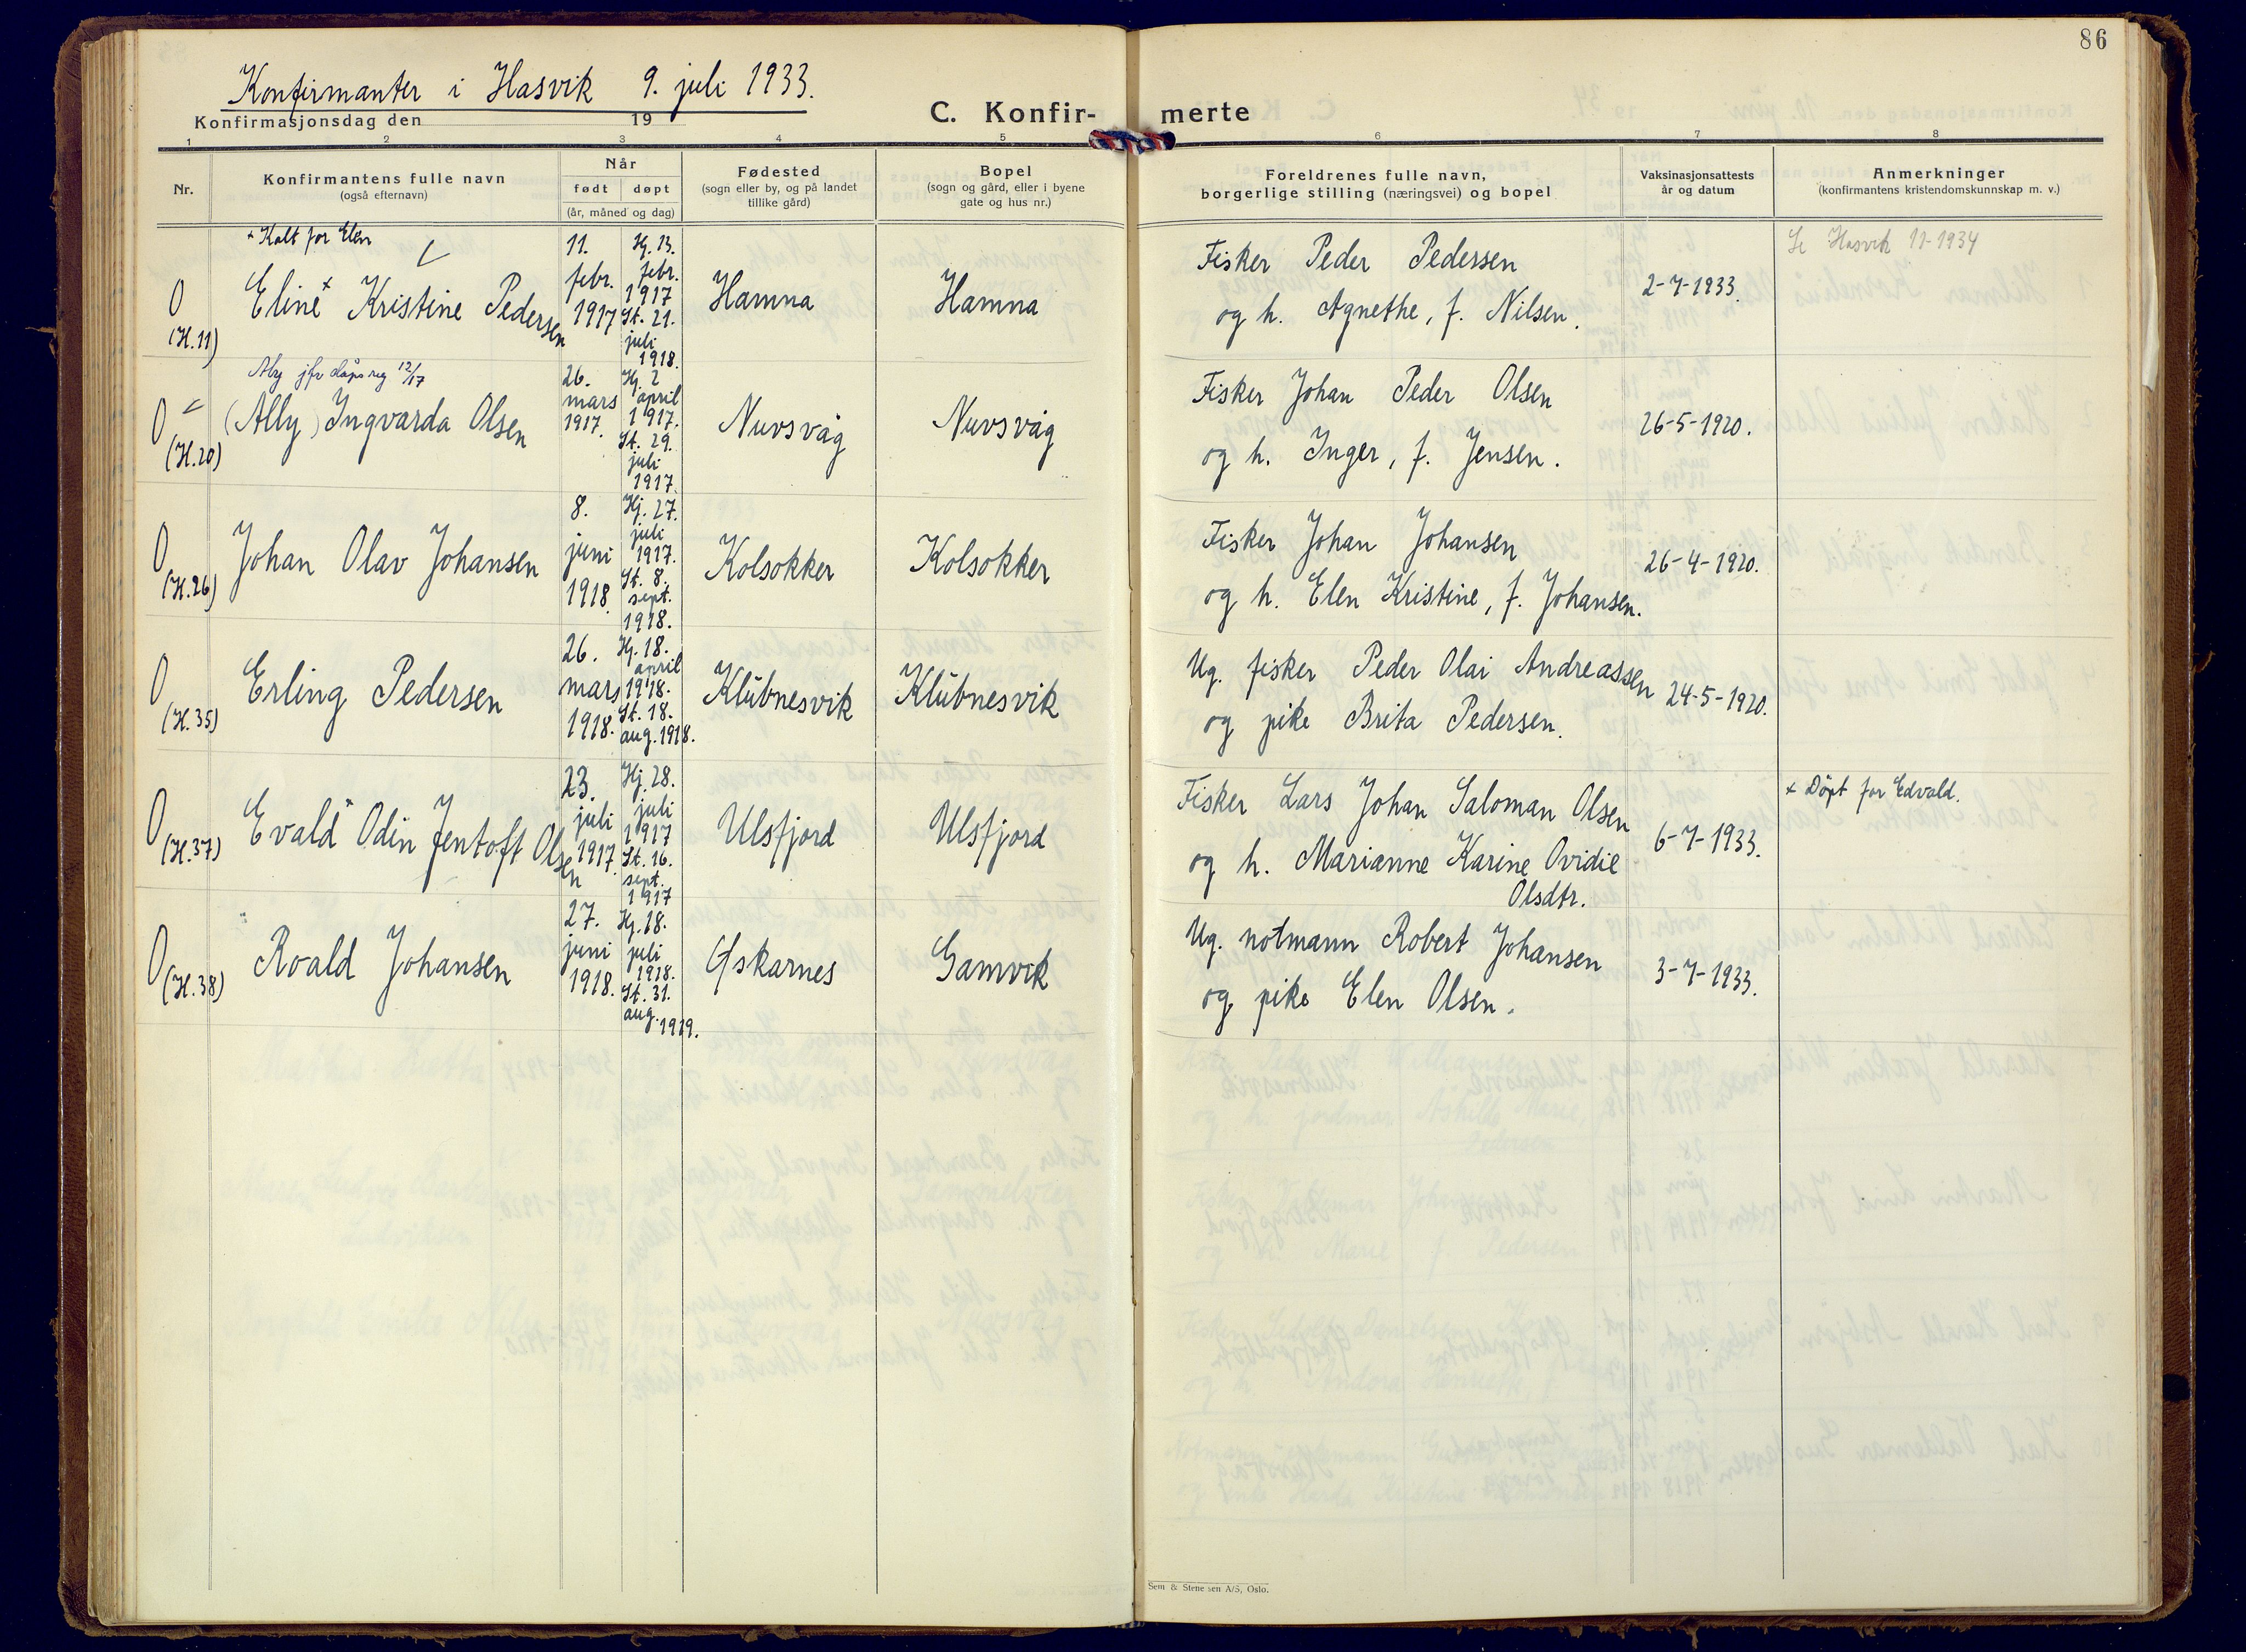 86
Konfirmanter i Hasvik 9. juli 1933.
Konfirmasjonsdag den 19
C. Konfir-
merte
1 2 3 4 5 6 7 8
Nr.
Konfirmantens fulle navn
(også efternavn)
Når
født døpt
(år, måned og dag)
Fødested
(sogn eller by, og på landet
tillike gård)
Bopel
(sogn og gård, eller i byene
gate og hus nr.)
Foreldrenes fulle navn,
borgerlige stilling (næringsvei) og bopel
Vaksinasjonsattests
år og datum
Anmerkninger
(konfirmantens kristendomskunnskap m. v.)
0
(H.11)
+ Kalt for Elen
Eline + Kristine Pedersen
11.
febr.
1917
Hj. 13.
febr.
1917
St. 21.
juli
1918.
Hamna
Hamna
Fisker Peder Pedersen
og h. Agnethe, f. Nilsen.
2-7-1933.
Hasvik 11-1934
0
(H.20)
Aly jfr dåpsreg 12/17
(Ally) Ingvarda Olsen
26.
mars
1917.
Hj. 2
april
1917.
St. 29.
juli
1917.
Nuvsvåg
Nuvsvåg
Fisker Johan Peder Olsen
og h. Inger, f. Jensen.
26-5-1920.
0
(H.26)
Johan Olav Johansen
8.
juni
1918.
Hj. 27.
juli
1917.
St. 8.
sept.
1918.
Kolsokker
Kolsokker
Fisker Johan Johansen
og h. Elen Kristine, f. Johansen.
26-4-1920.
0
(H.35)
Erling Pedersen
26.
mars
1918.
Hj. 18.
april
1918.
St. 18.
aug. 1918.
Klubnesvik
Klubnesvik
Ug. fisker Peder Olai Andreassen
og pike Brita Pedersen.
24-5-1920.
0
(H.37)
Evald + Odin Jentoft Olsen
23.
juli
1917.
Hj. 28.
juli
1917
St. 16.
sept.
1917
Ulsfjord
Ulsfjord
Fisker Lars Johan Saloman Olsen
og h. Marianne Karine Ovidie
Olsdtr.
6-7-1933.
+ Döpt for Edvald.
0
(H.38)
Roald Johansen
27.
juni
1918.
Hj. 18.
juli
1918.
St. 31.
aug. 1919.
Gamvik
Ug. notmann Robert Johansen
og pike Elen Olsen.
3-7-1933.
Sem & Stenersen A/S, Oslo.